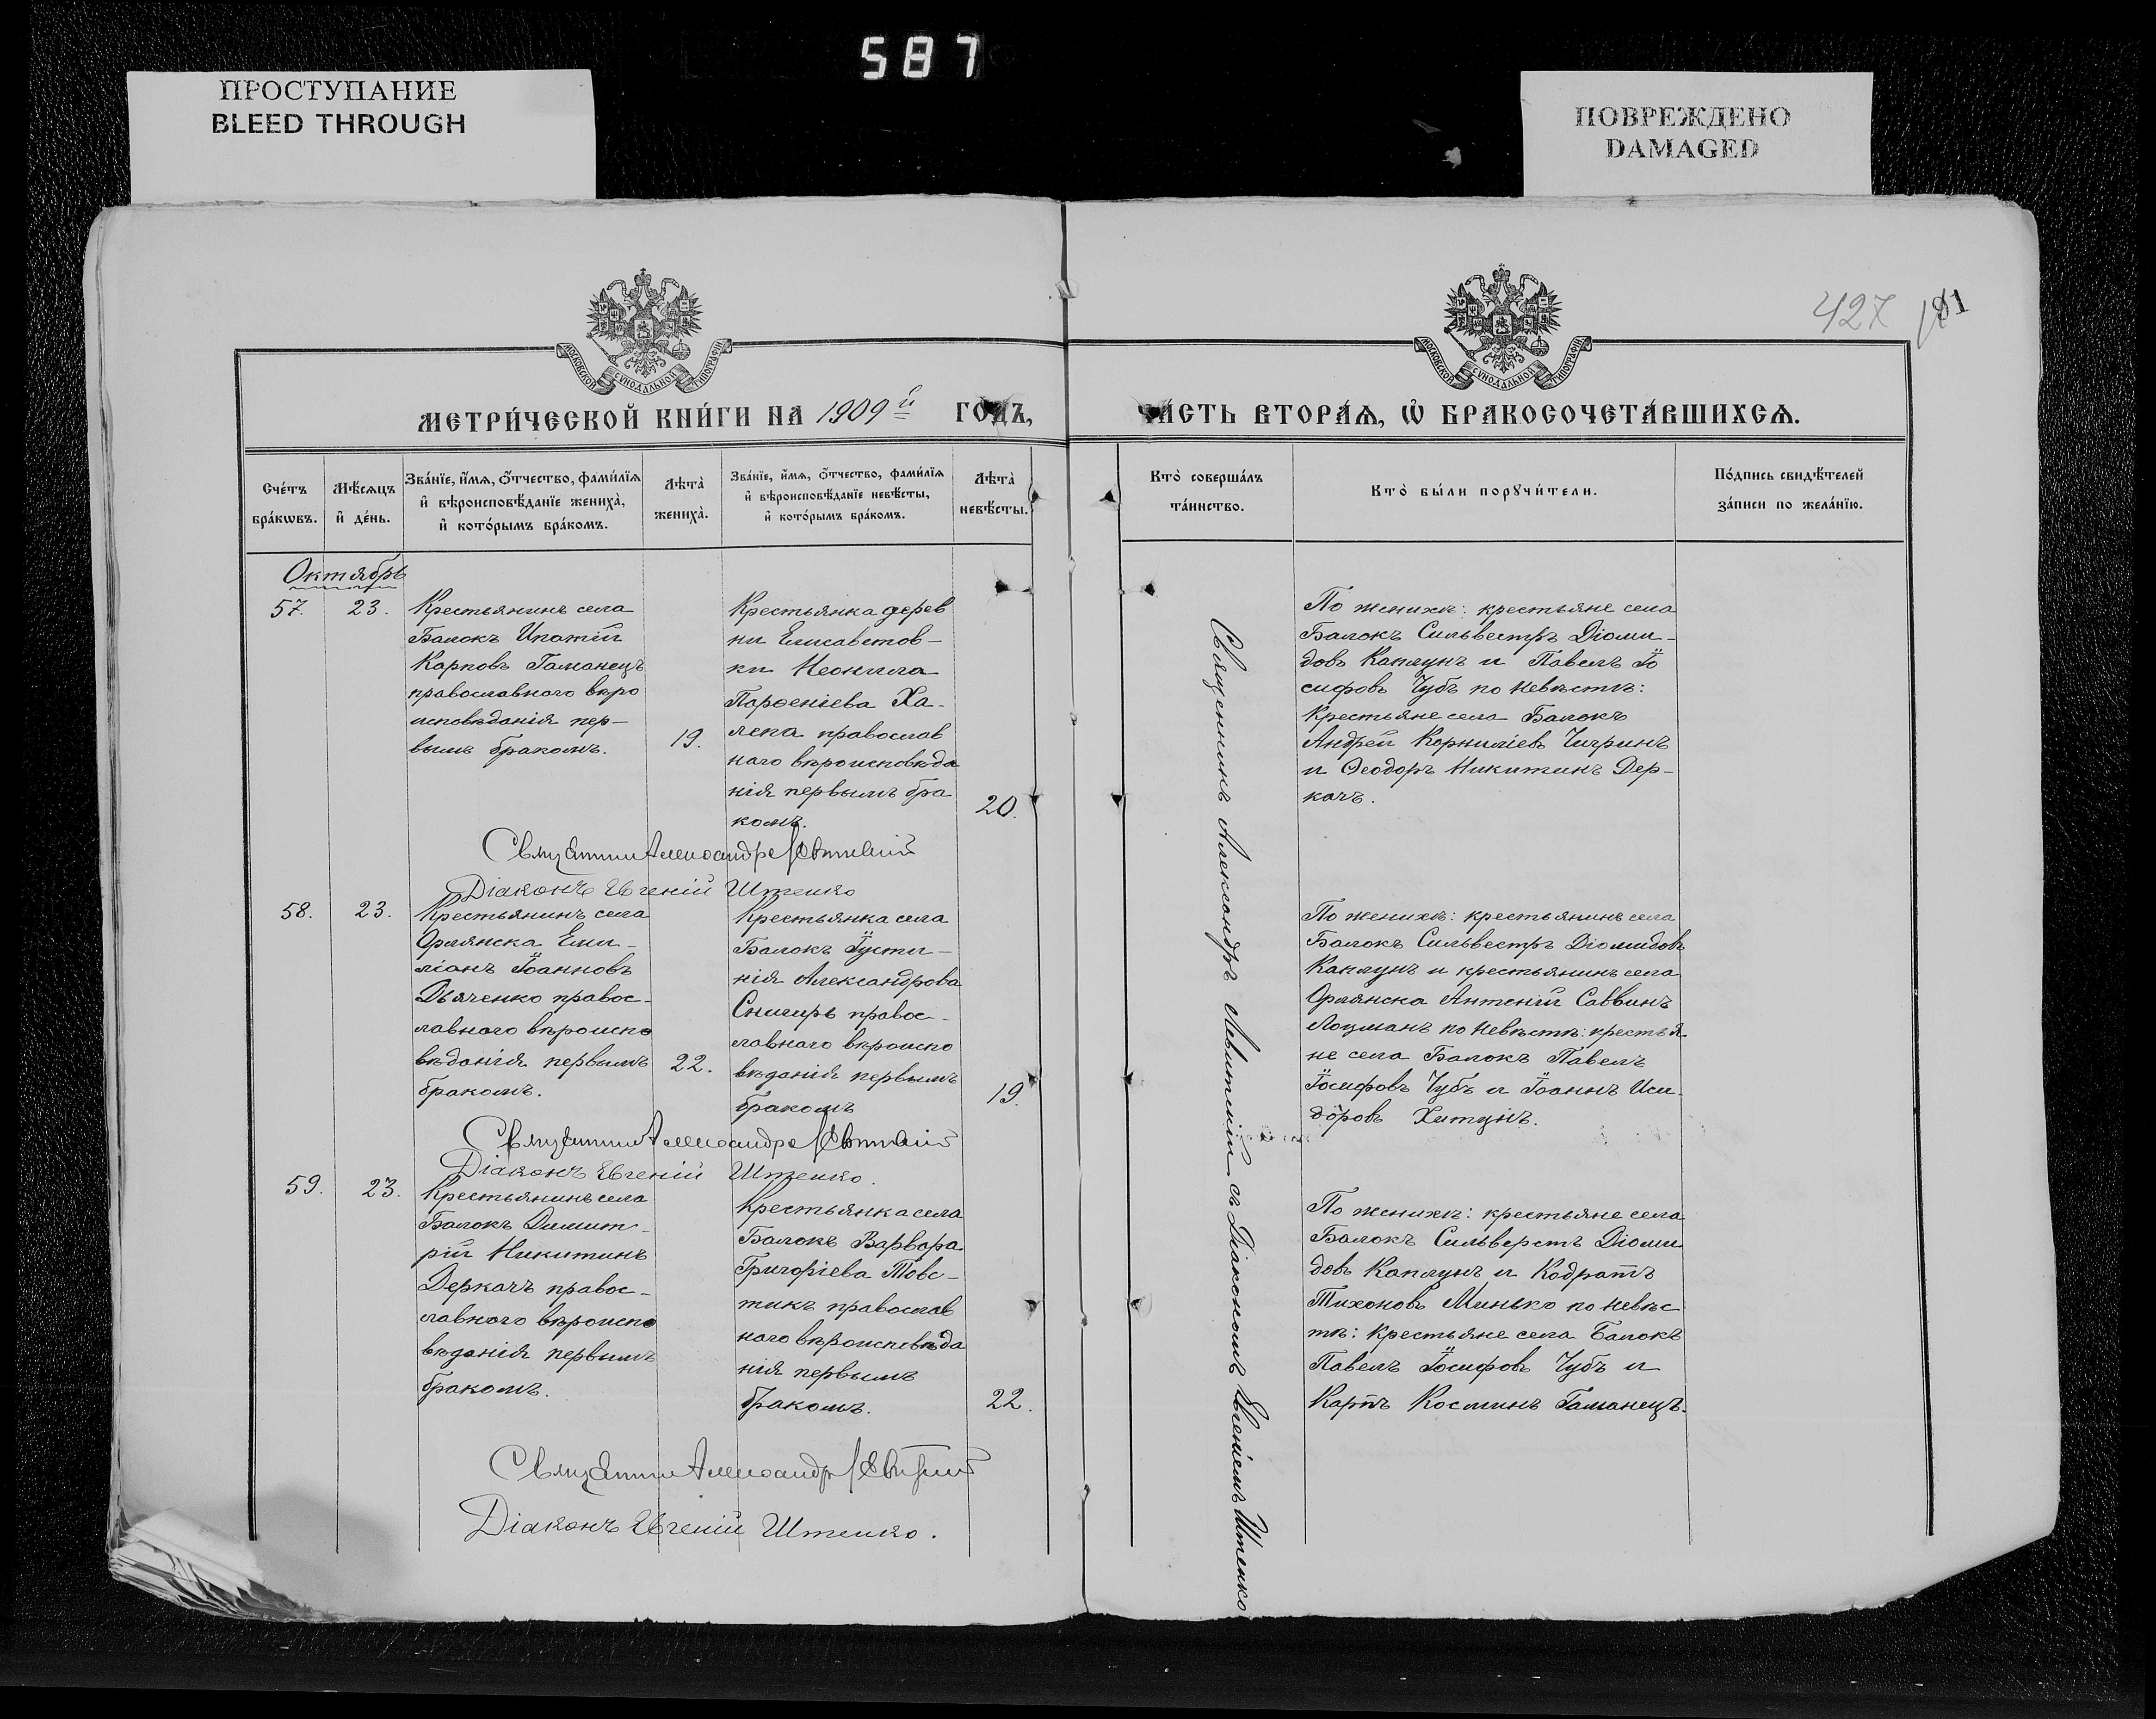 587
ПРОСТУПАНИЕ
BLEED THROUGH
ПОВРЕЖДЕНО
DAMAGED
427
МОСКОВСКОЙ СУНОДАЛЬНОЙ ТИПОГРАФІИ
МОСКОВСКОЙ СУНОДАЛЬНОЙ ТИПОГРАФІИ
МЕТРИ́ЧЕСКОЙ КНИ́ГИ НА 1909й ГОДЪ,
ЧА́СТЬ ВТОРА́Ѧ, Ѡ҆ БРАКОСОЧЕТА́ВШИХСѦ.
Сче́тъ
бра́кѡвъ.
Мѣ́сѧцъ
и҆ де́нь.
Зва́нїе, и҆́мѧ, ѻ҆́тчество, фами́лїѧ
и҆ вѣроисповѣ́данїе жениха̀,
и҆ кото́рымъ бра́комъ.
Лѣта̀
жениха̀.
Зва́нїе, и҆́мѧ, ѻ҆́тчество, фами́лїѧ
и҆ вѣроисповѣ́данїе невѣ́сты,
и҆ кото́рымъ бра́комъ.
Лѣта̀
невѣ́сты.
Кто̀ соверша́лъ
та́инство.
Кто̀ бы́ли порꙋчи́тели.
По́дпись свидѣ́телей
за́писи по жела́нїю.
Октябрь
57.
23.
Крестьянинъ села
Балокъ Ипатій
Карповъ Гаманецъ
православнаго вѣро
исповѣданія пер-
вымъ бракомъ.
19.
Крестьянка дерев
ни Елисаветов-
ки Неонила
Парѳеніева Ха-
лепа православ
наго вѣроисповѣда
нія первымъ бра
комъ.
20.
По женихѣ: крестьяне села
Балокъ Сильвестръ Діоми-
довъ Каплунъ и Павелъ Іо
сифовъ Чубъ по невѣстѣ:
крестьяне села Балокъ
Андрей Корниліевъ Чигринъ
и Ѳеодоръ Никитинъ Дер-
качъ.
Священникъ Александръ Левитскій
Діаконъ Евгеній Штепко
58.
23.
Крестьянинъ села
Орлянска Еми-
ліанъ Іоанновъ
Дьяченко правос-
лавнаго вѣроиспо
вѣданія первымъ
бракомъ.
22.
Крестьянка села
Балокъ Іусти-
нія Александрова
Снигирь правос-
лавнаго вѣроиспо
вѣданія первымъ
бракомъ
19.
По женихѣ: крестьянинъ села
Балокъ Сильвестръ Діомидовъ
Каплунъ и крестьянинъ села
Орлянска Антоній Саввинъ
Лоцманъ по невѣстѣ: крестья
не села Балокъ Павелъ
Іосифовъ Чубъ и Іоаннъ Иси-
доровъ Хитунъ.
Священникъ Александръ Левитскій
Діаконъ Евгеній Штепко.
59.
23.
Крестьянинъ села
Балокъ Димит-
рій Никитинъ
Деркачъ правос-
лавнаго вѣроиспо
вѣданія первымъ
бракомъ.
Крестьянка села
Балокъ Варвара
Григоріева Товс-
тикъ православ
наго вѣроисповѣда
нія первымъ
бракомъ.
22.
По женихѣ: крестьяне села
Балокъ Сильверстъ Діоми
довъ Каплунъ и Кодратъ
Тихоновъ Минько по невѣс
тѣ: крестьяне села Балокъ
Павелъ Іосифовъ Чубъ и
Карпъ Косминъ Гаманецъ.
Священникъ Александръ Левитскій
Діаконъ Евгеній Штепко.
Священникъ Александръ Левитскій съ Діакономъ Евгеніемъ Штепко